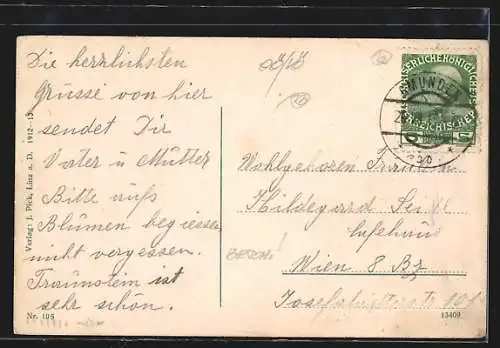 Die herzlichsten
Grüsse von hier
sendet Dir
Vater u Mutter
Bitte aufs
Blumen begiessen
nicht vergessen.
Traunstein ist
sehr schön.
Verlag: J. Pick, Linz a. D. 1912-13
Nr. 108
KAISERLICHEKÖNIGLICHE
ÖSTERREICHISCHE
GMUNDEN
Wohlgeboren
Hildegard
Wien 8 Bz
13409